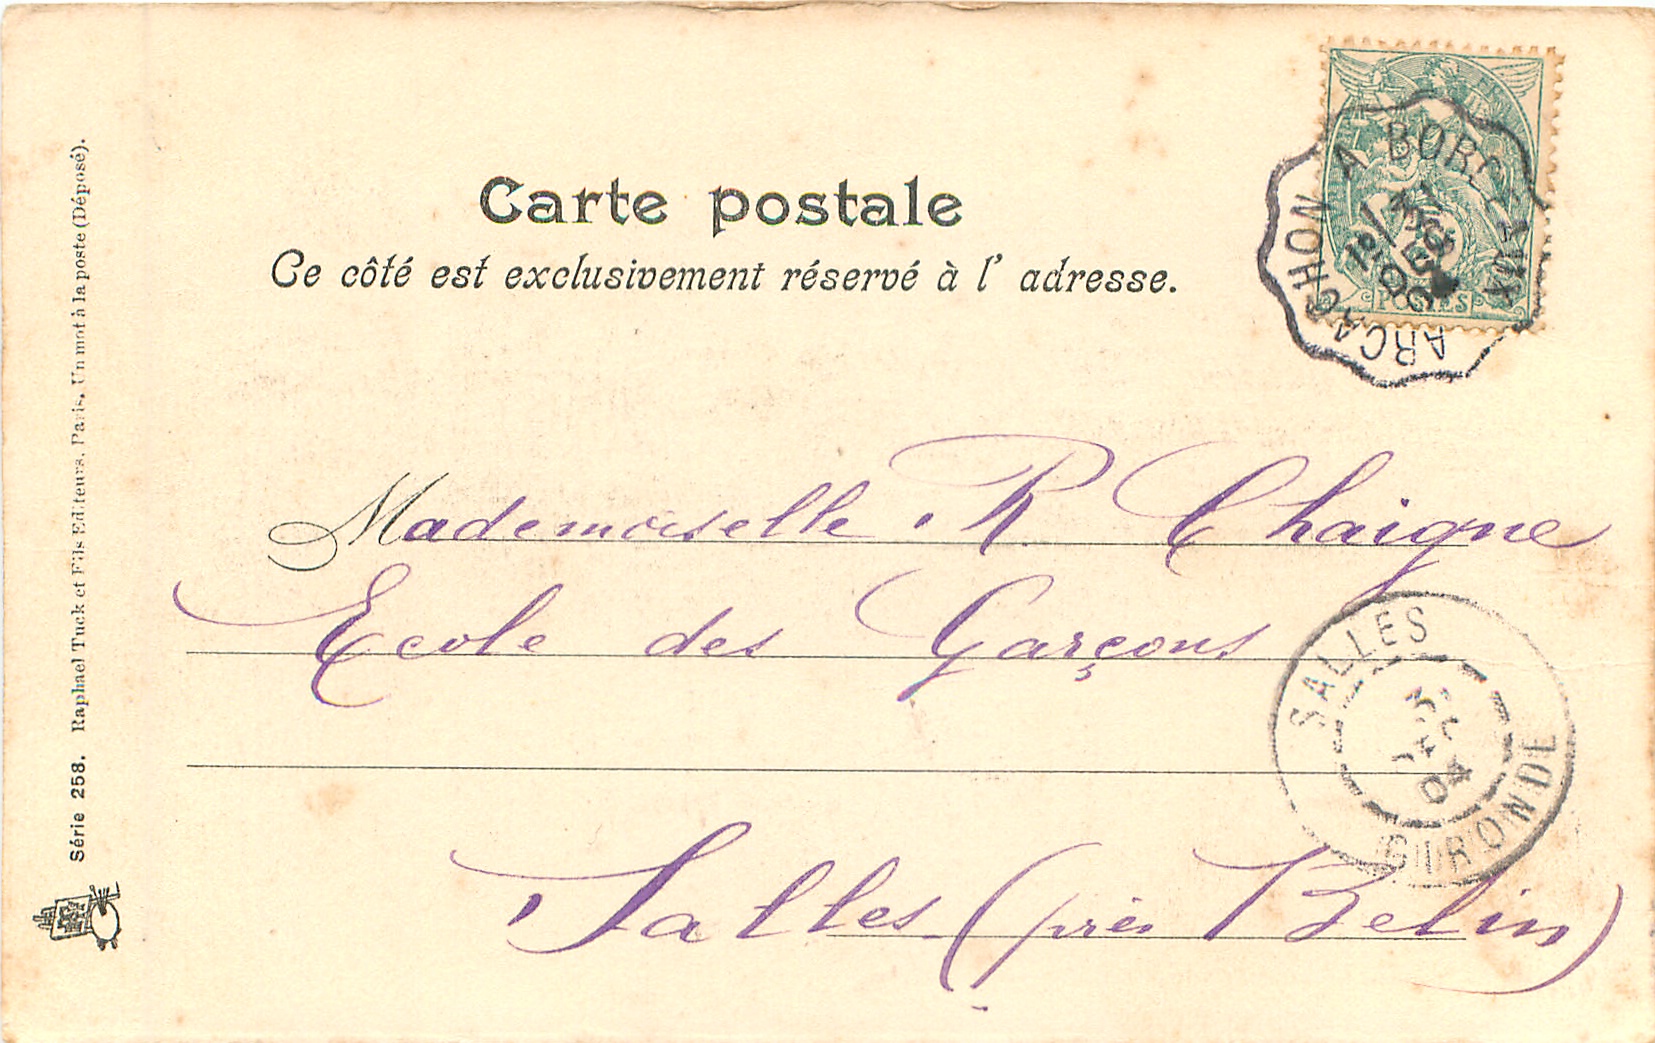 Carte postale
Ce côté est exclusivement réservé à l' adresse.
Mademoiselle R Chaigne
Ecole des Garçons
Salles (près Belin)
Série 258. Raphael Tuck et Fils Editeurs, Paris, Un mot à la poste (Déposé).
ARCACHON A BORD
POSTES
SALLES
DEC
04
GIRONDE